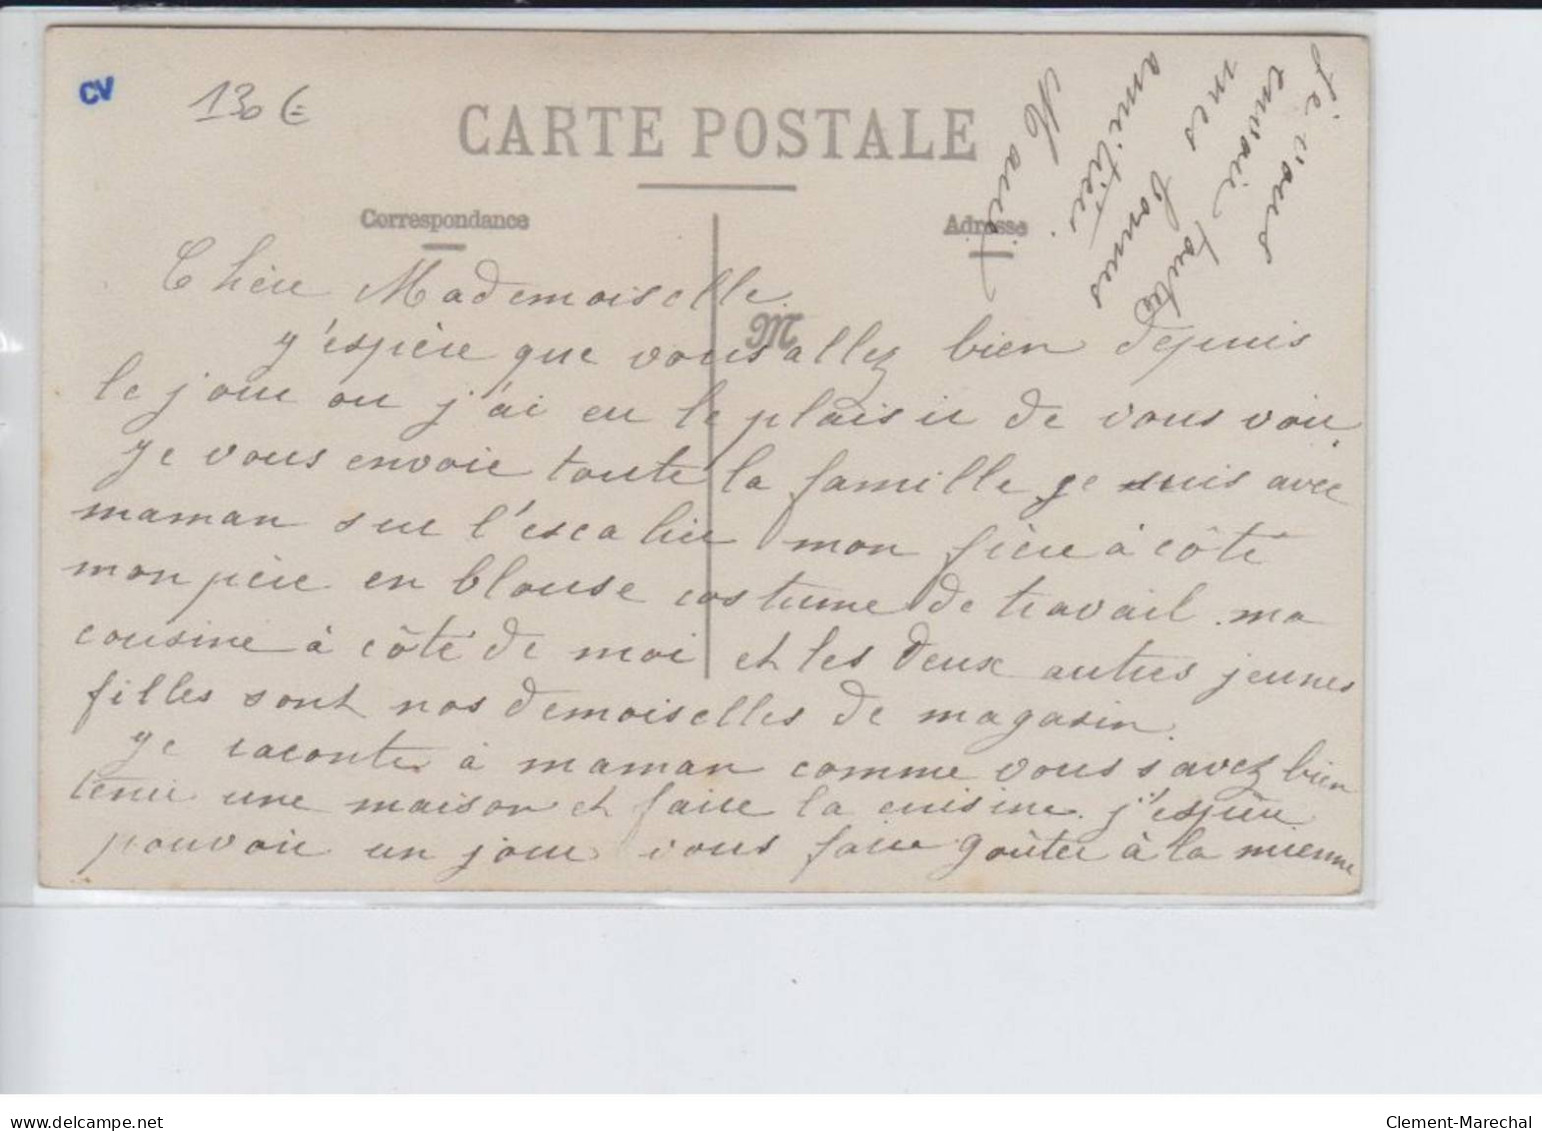 CV
130 €
CARTE POSTALE
Correspondance
Adresse
Chère Mademoiselle.
M
j'espère que vous allez bien depuis
le jour ou j'ai eu le plaisir de vous voir.
je vous envoie toute la famille je suis avec
maman sur l'escalier mon frère à côté
mon père en blouse costume de travail. ma
cousine à côté de moi et les deux autres jeunes
filles sont nos demoiselles de magasin.
je raconte à maman comme vous savez bien
tenir une maison et faire la cuisine. j'espère
pouvoir un jour vous faire goûter à la mienne
Je vous
envoie
mes toutes
bonnes
amitiés.
delcampe.net
Clement-Marechal